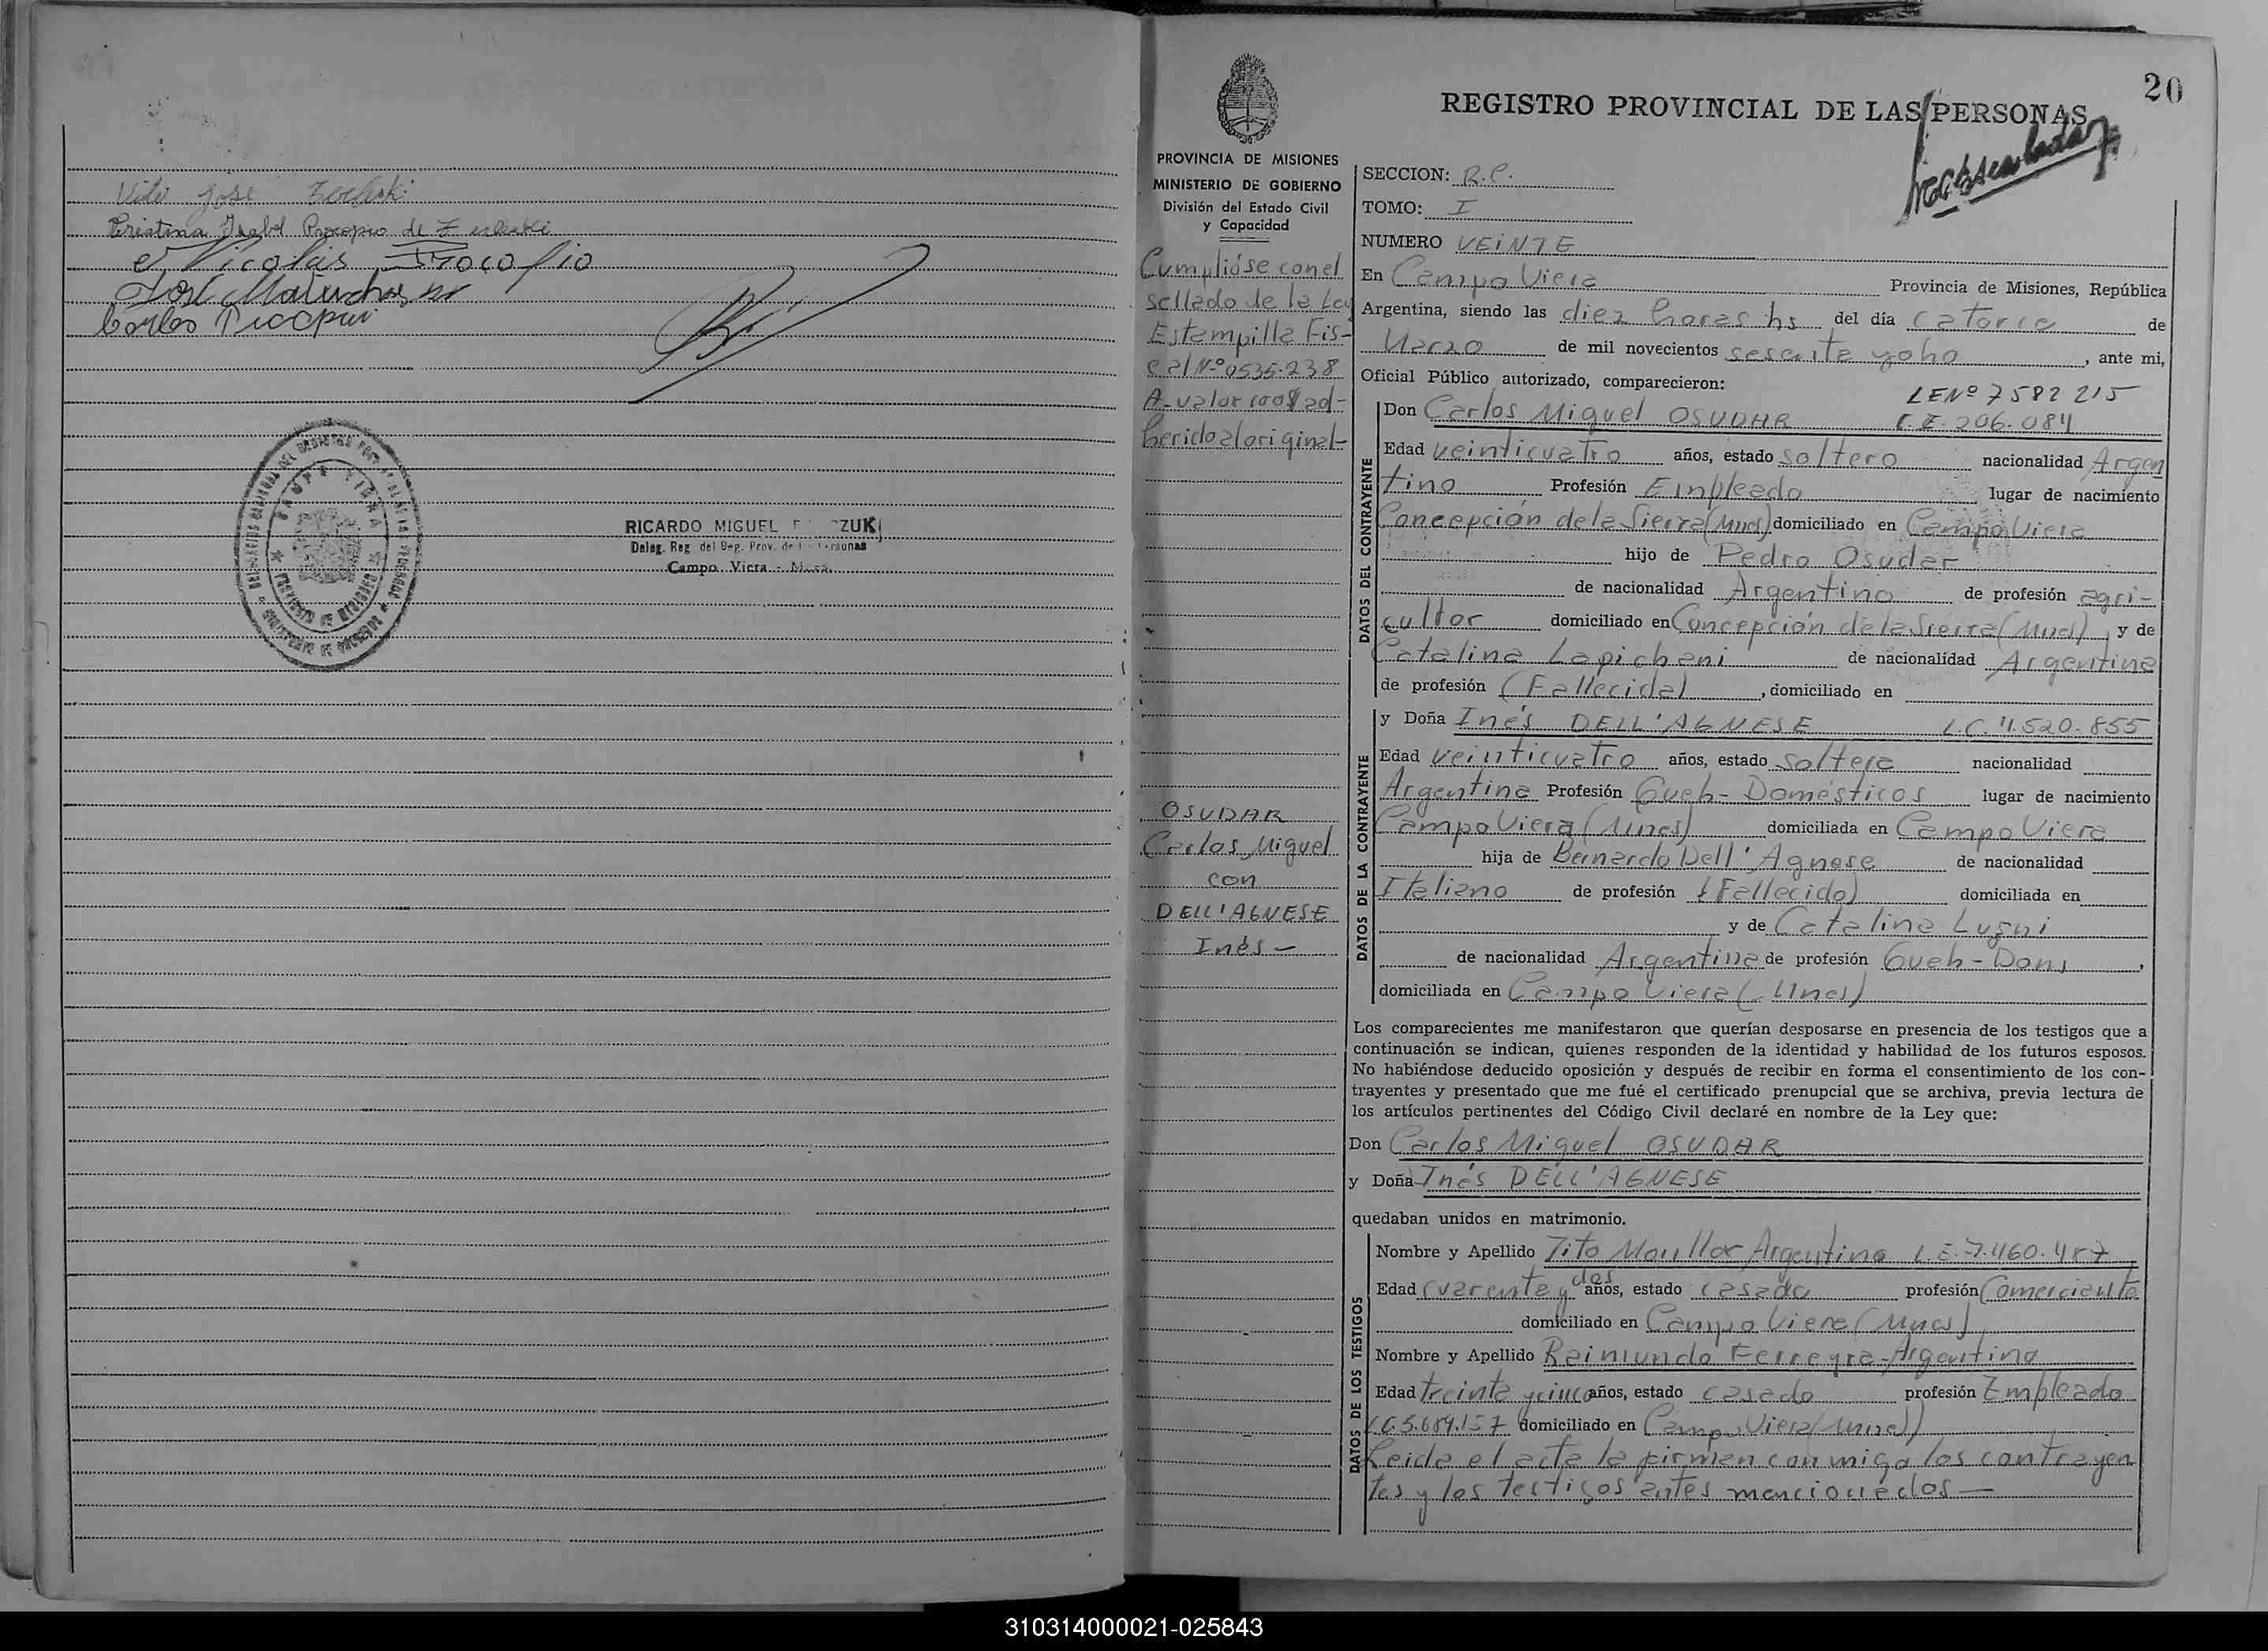 Vito José
Cristina Isabel Procopio de
Nicolás Procopio
José
Carlos Procopio
RICARDO MIGUEL ZUK
Deleg. Reg. del Reg. Prov. de las Personas
Campo Viera - Mnes.
20
REGISTRO PROVINCIAL DE LAS PERSONAS
PROVINCIA DE MISIONES
MINISTERIO DE GOBIERNO
División del Estado Civil
y Capacidad
Cumplióse con el
sellado de la Ley
Estampilla Fis-
cal Nº 0535.238
A-valor 100$ ad-
herido al original-
OSUDAR
Carlos Miguel
con
DELL'AGNESE
Inés-
SECCION: R.C.
TOMO: I
NUMERO VEINTE
En Campo Viera Provincia de Misiones, República
Argentina, siendo las diez horas hs del día catorce de
Marzo de mil novecientos sesenta y oho, ante mi,
Oficial Público autorizado, comparecieron:
LE Nº 7582215
Don Carlos Miguel OSUDAR C.I. 206.084
DATOS DEL CONTRAYENTE
Edad veinticuatro años, estado soltero nacionalidad Argen
tino Profesión Empleado lugar de nacimiento
Concepción de la Sierra (Mnes) domiciliado en Campo Viera
hijo de Pedro Osudar
de nacionalidad Argentino de profesión agri-
cultor domiciliado en Concepción de la Sierra (Mnes), y de
Catalina Lapichani de nacionalidad Argentina
de profesión (Fallecida), domiciliado en
y Doña Inés DELL'AGNESE L.C. 4.520.855
DATOS DE LA CONTRAYENTE
Edad veinticuatro años, estado soltera nacionalidad
Argentina Profesión Queh-Domésticos lugar de nacimiento
Campo Viera (Mnes) domiciliada en Campo Viera
hija de Bernardo Dell'Agnese de nacionalidad
Italiano de profesión (Fallecido) domiciliada en
y de Catalina Lugni
de nacionalidad Argentina de profesión Queh-Dom,
domiciliada en Campo Viera (Mnes)
Los comparecientes me manifestaron que querían desposarse en presencia de los testigos que a
continuación se indican, quienes responden de la identidad y habilidad de los futuros esposos.
No habiéndose deducido oposición y después de recibir en forma el consentimiento de los con-
trayentes y presentado que me fué el certificado prenupcial que se archiva, previa lectura de
los artículos pertinentes del Código Civil declaré en nombre de la Ley que:
Don Carlos Miguel OSUDAR
y Doña Inés DELL'AGNESE
quedaban unidos en matrimonio.
DATOS DE LOS TESTIGOS
Nombre y Apellido Tito Moullor Argentino L.E. 7.460.487
Edad cuarenta y dos años, estado casado profesión Comerciante
domiciliado en Campo Viera (Mnes)
Nombre y Apellido Raimundo Ferreyra-Argentino
Edad treinta y cinco años, estado casado profesión Empleado
5.689.157 domiciliado en Campo Viera (Mnes)
Leida el acta la firman conmigo los contrayen
tes y los testigos antes mencionados-
310314000021-025843